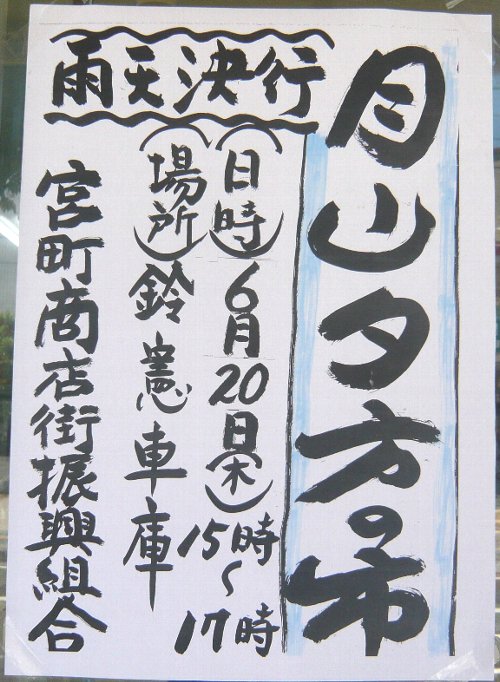 月山夕方の市
雨天決行
(日時)6月20日(木)
15時〜
17時
(場所)鈴憲車庫
宮町商店街振興組合